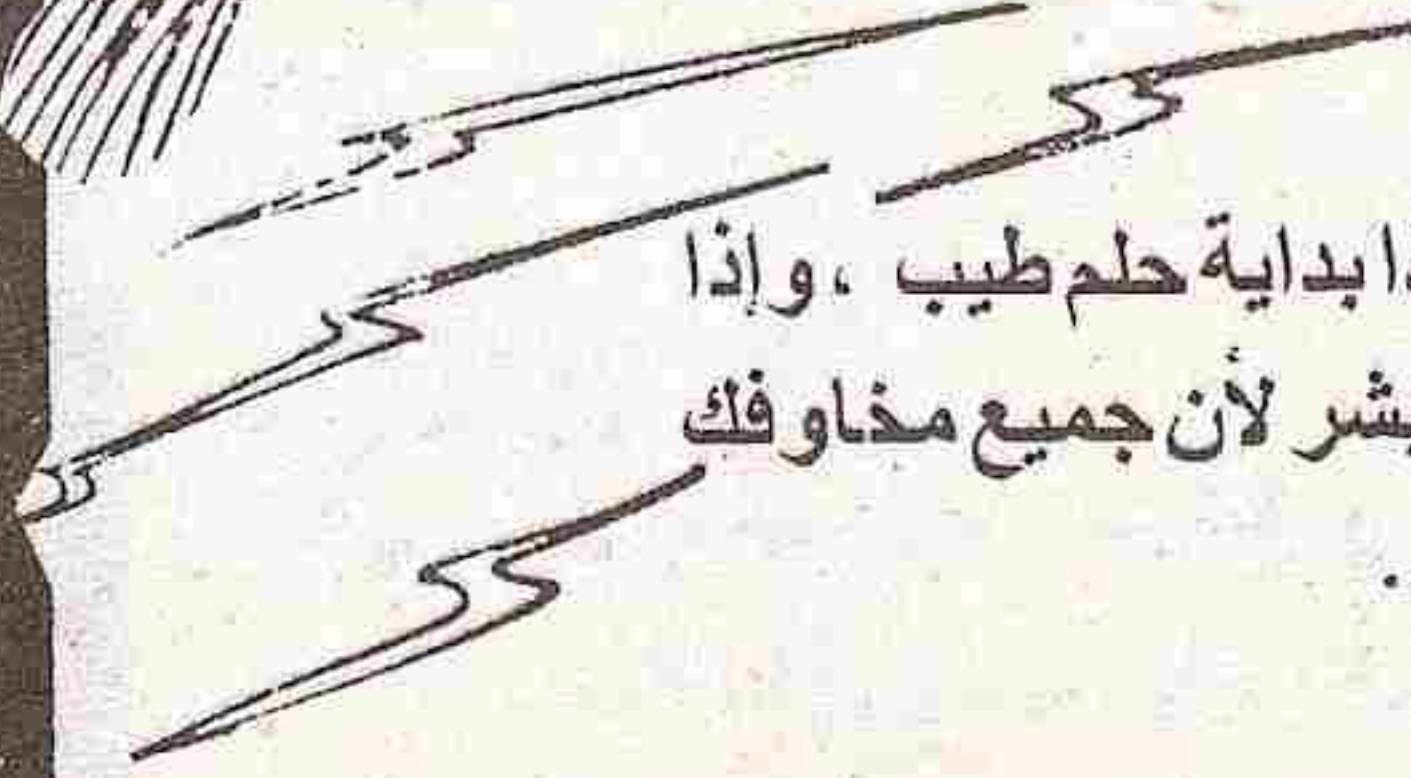 بداية حلم طيب ، وإذا
لأن جميع مخاوفك
.